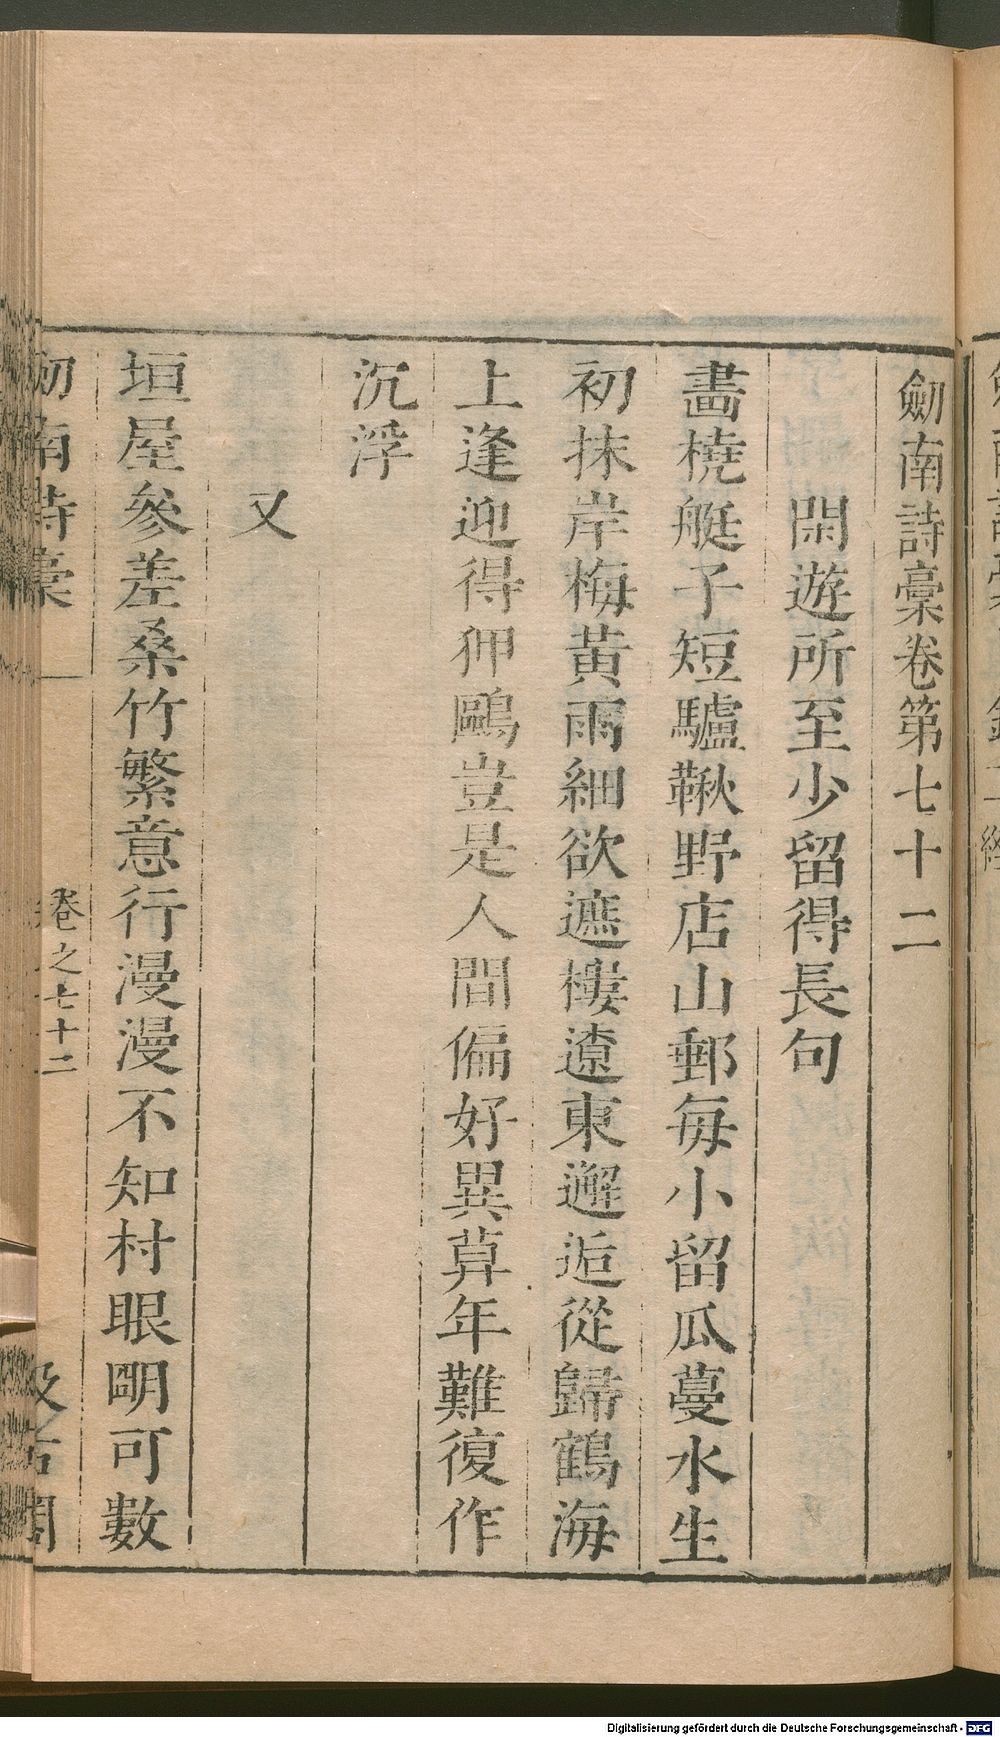 劒南詩稾卷第七十二
閑遊所至少留得長句
畵橈艇子短驢鞦野店山郵每小留瓜蔓水生
初抹岸梅黃雨細欲遮樓遼東邂逅從歸鶴海
上逢迎得狎鷗豈是人間偏好異莫年難復作
沉浮
又
垣屋參差桑竹繁意行漫漫不知村眼明可數
劒南詩稾
卷之七十二
汲古閣
Digitalisierung gefördert durch die Deutsche Forschungsgemeinschaft - DFG